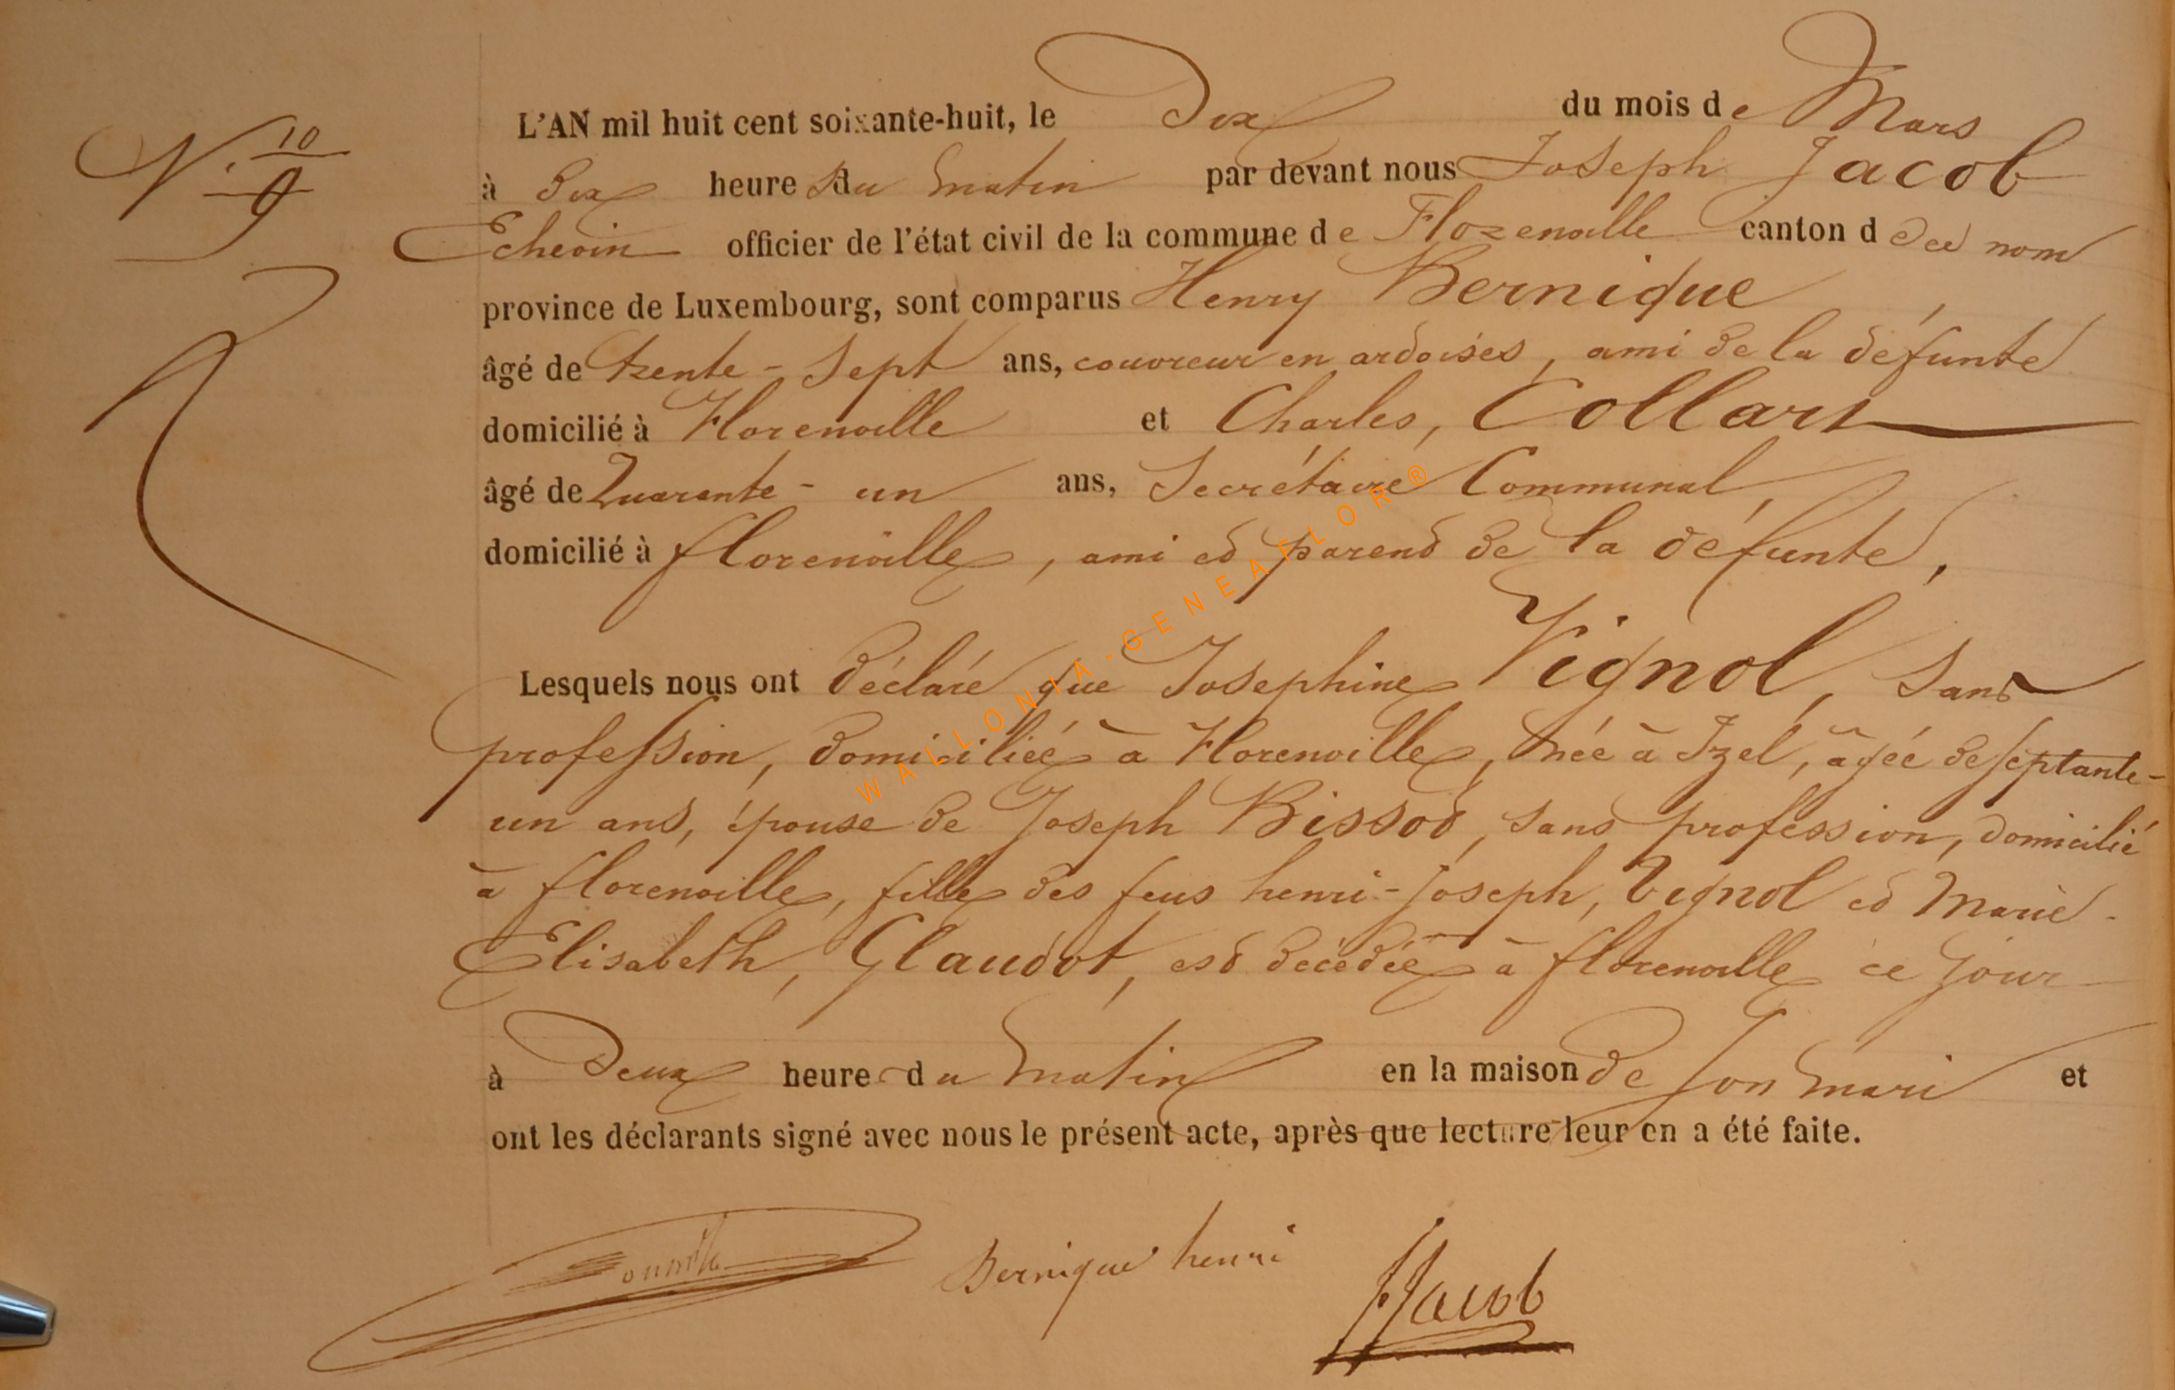 N° 10
9
L'AN mil huit cent soixante-huit, le Dix du mois de Mars
à dix heures du matin par devant nous Joseph Jacob
Echevin officier de l'état civil de la commune de Florenville canton d de ce nom
province de Luxembourg, sont comparus Henry Bernique,
âgé de trente-sept ans, couvreur en ardoises, ami de la défunte
domicilié à Florenville et Charles, Collart
âgé de Quarante-un ans, Secrétaire Communal,
domicilié à florenville, ami et parent de la défunte,
Lesquels nous ont déclaré que Josephine Vignol, Sans
profession, domiciliée à Florenville, née à Izel, âgée de septante-
un ans, épouse de Joseph Bissot, sans profession, domicilié
à florenville, fille des feus henri-Joseph, Vignol et Marie-
Elisabeth, Glaudot, est décédée à florenville ce jour
à Deux heures du matin en la maison de son mari et
ont les déclarants signé avec nous le présent acte, après que lecture leur en a été faite.
Bernique henri JJacob
WALLONIA-GENEAFLOR®